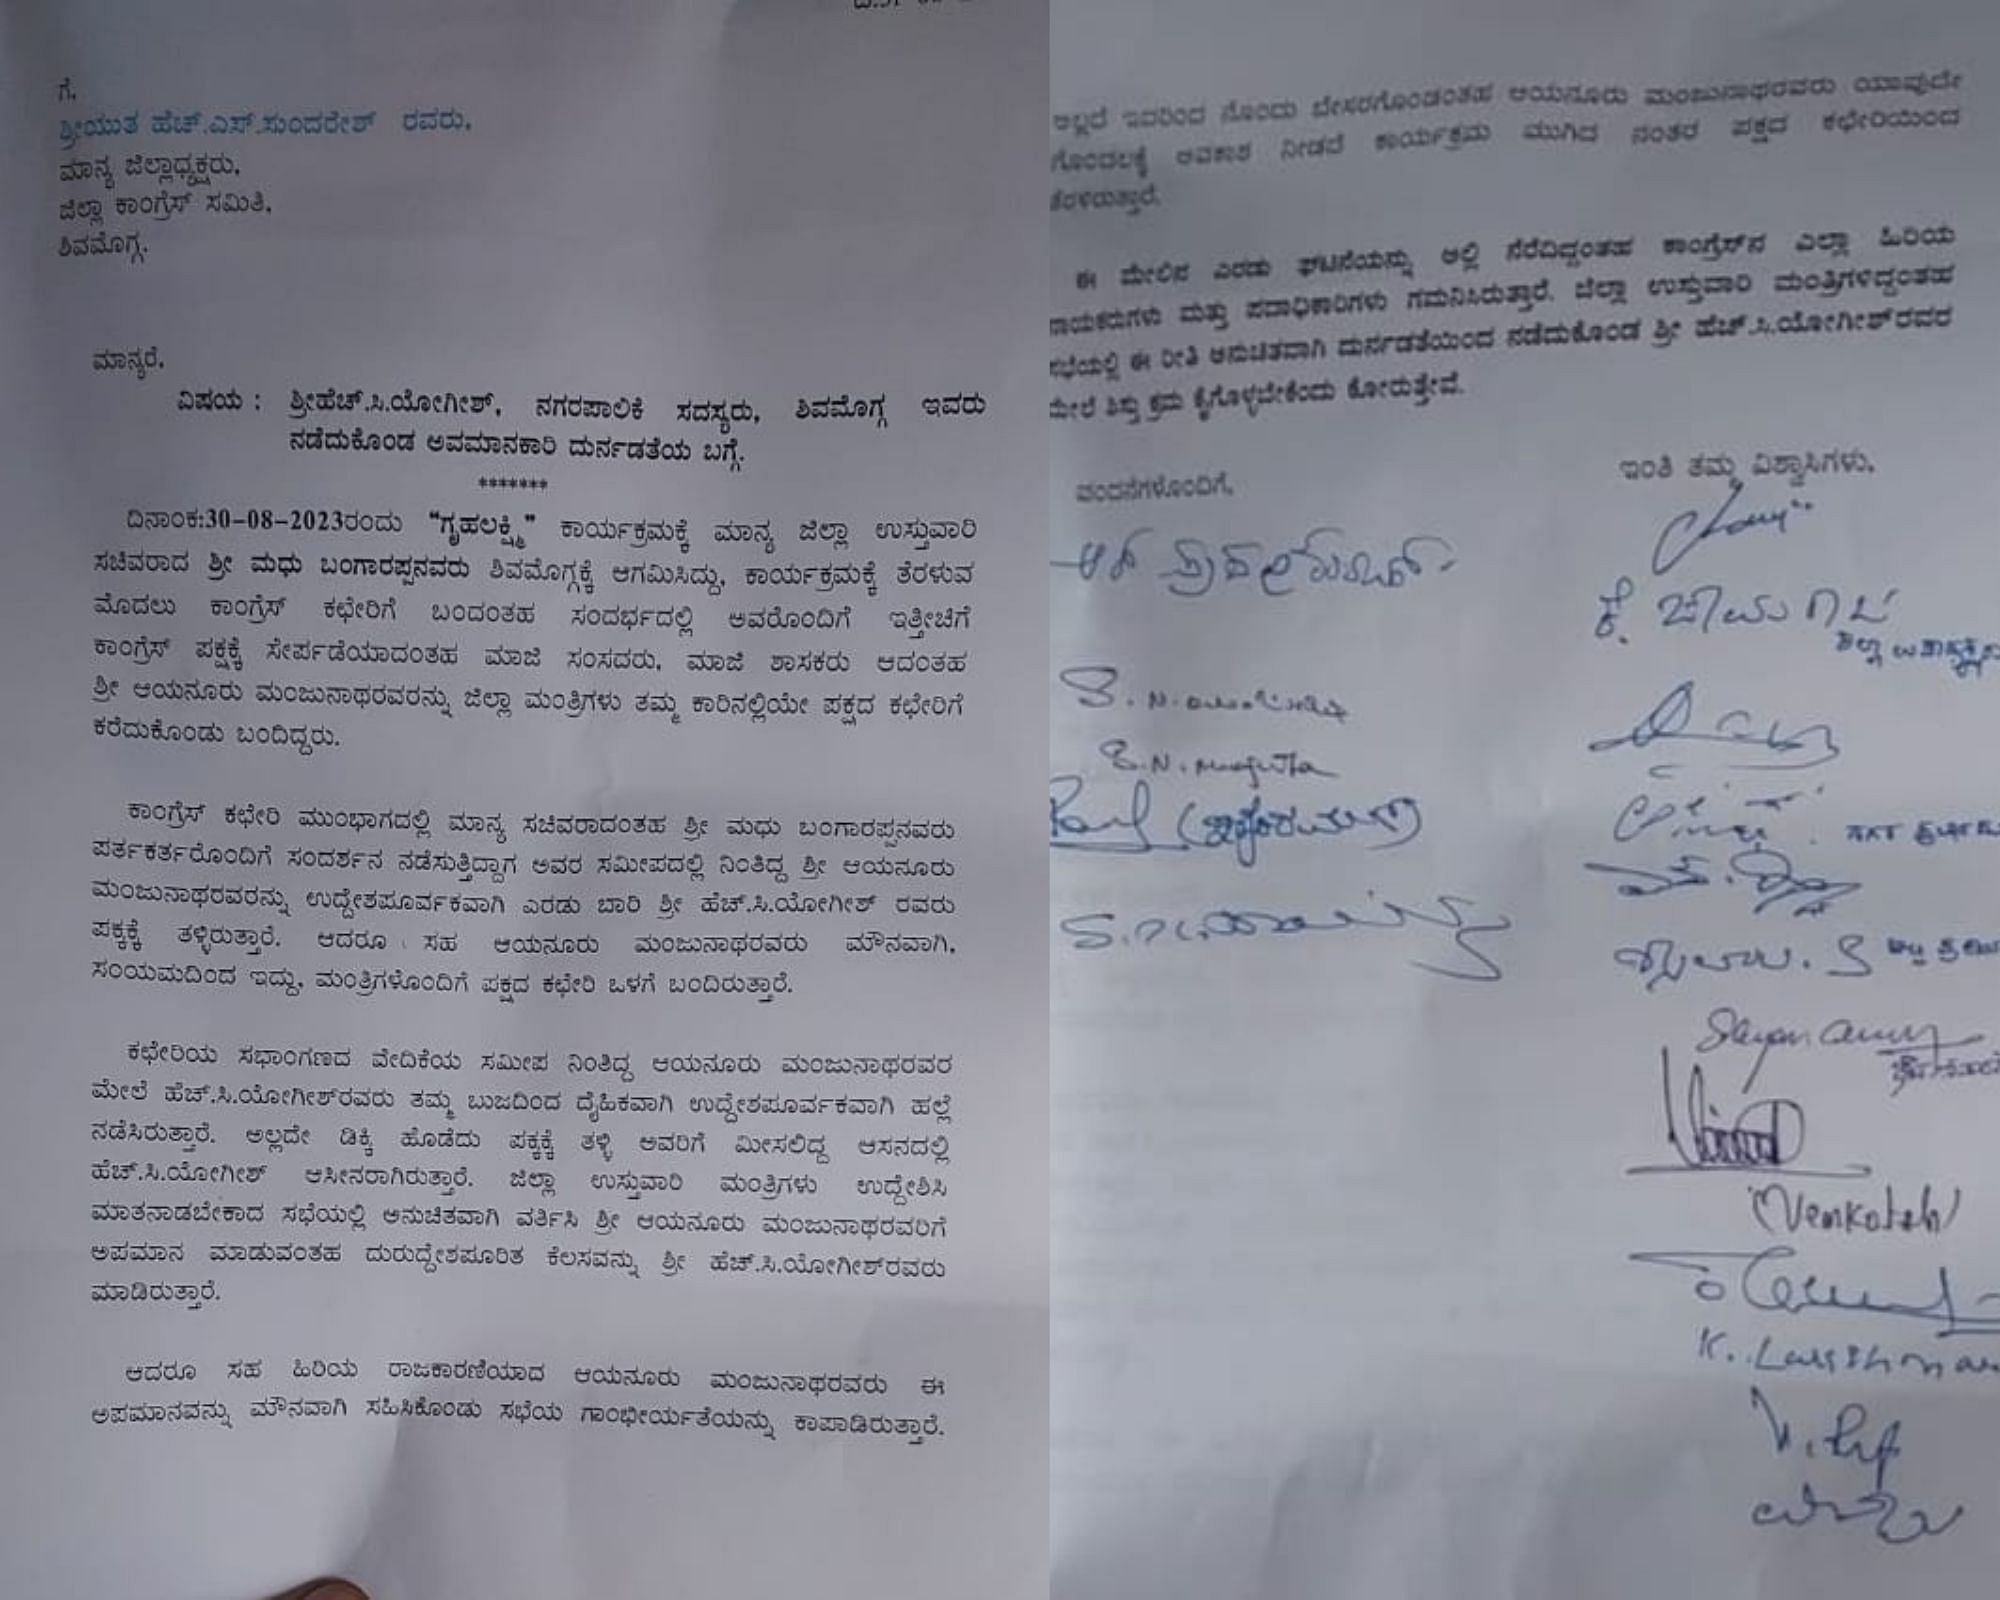 ಗೆ,
ಶ್ರೀಯುತ ಹೆಚ್.ಎಸ್.ಸುಂದರೇಶ್ ರವರು,
ಮಾನ್ಯ ಜಿಲ್ಲಾಧ್ಯಕ್ಷರು,
ಜಿಲ್ಲಾ ಕಾಂಗ್ರೆಸ್ ಸಮಿತಿ,
ಶಿವಮೊಗ್ಗ.
ಮಾನ್ಯರೆ,
ವಿಷಯ : ಶ್ರೀಹೆಚ್.ಸಿ.ಯೋಗೀಶ್, ನಗರಪಾಲಿಕೆ ಸದಸ್ಯರು, ಶಿವಮೊಗ್ಗ ಇವರು
ನಡೆದುಕೊಂಡ ಅವಮಾನಕಾರಿ ದುರ್ನಡತೆಯ ಬಗ್ಗೆ.
*******
ದಿನಾಂಕ:30-08-2023ರಂದು "ಗೃಹಲಕ್ಷ್ಮಿ" ಕಾರ್ಯಕ್ರಮಕ್ಕೆ ಮಾನ್ಯ ಜಿಲ್ಲಾ ಉಸ್ತುವಾರಿ
ಸಚಿವರಾದ ಶ್ರೀ ಮಧು ಬಂಗಾರಪ್ಪನವರು ಶಿವಮೊಗ್ಗಕ್ಕೆ ಆಗಮಿಸಿದ್ದು, ಕಾರ್ಯಕ್ರಮಕ್ಕೆ ತೆರಳುವ
ಮೊದಲು ಕಾಂಗ್ರೆಸ್ ಕಛೇರಿಗೆ ಬಂದಂತಹ ಸಂದರ್ಭದಲ್ಲಿ ಅವರೊಂದಿಗೆ ಇತ್ತೀಚಿಗೆ
ಕಾಂಗ್ರೆಸ್ ಪಕ್ಷಕ್ಕೆ ಸೇರ್ಪಡೆಯಾದಂತಹ ಮಾಜಿ ಸಂಸದರು, ಮಾಜಿ ಶಾಸಕರು ಆದಂತಹ
ಶ್ರೀ ಆಯನೂರು ಮಂಜುನಾಥರವರನ್ನು ಜಿಲ್ಲಾ ಮಂತ್ರಿಗಳು ತಮ್ಮ ಕಾರಿನಲ್ಲಿಯೇ ಪಕ್ಷದ ಕಛೇರಿಗೆ
ಕರೆದುಕೊಂಡು ಬಂದಿದ್ದರು.
ಕಾಂಗ್ರೆಸ್ ಕಛೇರಿ ಮುಂಭಾಗದಲ್ಲಿ ಮಾನ್ಯ ಸಚಿವರಾದಂತಹ ಶ್ರೀ ಮಧು ಬಂಗಾರಪ್ಪನವರು
ಪರ್ತಕರ್ತರೊಂದಿಗೆ ಸಂದರ್ಶನ ನಡೆಸುತ್ತಿದ್ದಾಗ ಅವರ ಸಮೀಪದಲ್ಲಿ ನಿಂತಿದ್ದ ಶ್ರೀ ಆಯನೂರು
ಮಂಜುನಾಥರವರನ್ನು ಉದ್ದೇಶಪೂರ್ವಕವಾಗಿ ಎರಡು ಬಾರಿ ಶ್ರೀ ಹೆಚ್.ಸಿ.ಯೋಗೀಶ್ ರವರು
ಪಕ್ಕಕ್ಕೆ ತಳ್ಳಿರುತ್ತಾರೆ. ಆದರೂ ಸಹ ಆಯನೂರು ಮಂಜುನಾಥರವರು ಮೌನವಾಗಿ,
ಸಂಯಮದಿಂದ ಇದ್ದು, ಮಂತ್ರಿಗಳೊಂದಿಗೆ ಪಕ್ಷದ ಕಛೇರಿ ಒಳಗೆ ಬಂದಿರುತ್ತಾರೆ.
ಕಛೇರಿಯ ಸಭಾಂಗಣದ ವೇದಿಕೆಯ ಸಮೀಪ ನಿಂತಿದ್ದ ಆಯನೂರು ಮಂಜುನಾಥರವರ
ಮೇಲೆ ಹೆಚ್.ಸಿ.ಯೋಗೀಶ್‌ರವರು ತಮ್ಮ ಬುಜದಿಂದ ದೈಹಿಕವಾಗಿ ಉದ್ದೇಶಪೂರ್ವಕವಾಗಿ ಹಲ್ಲೆ
ನಡೆಸಿರುತ್ತಾರೆ. ಅಲ್ಲದೇ ಡಿಕ್ಕಿ ಹೊಡೆದು ಪಕ್ಕಕ್ಕೆ ತಳ್ಳಿ ಅವರಿಗೆ ಮೀಸಲಿದ್ದ ಆಸನದಲ್ಲಿ
ಹೆಚ್.ಸಿ.ಯೋಗೀಶ್ ಆಸೀನರಾಗಿರುತ್ತಾರೆ. ಜಿಲ್ಲಾ ಉಸ್ತುವಾರಿ ಮಂತ್ರಿಗಳು ಉದ್ದೇಶಿಸಿ
ಮಾತನಾಡಬೇಕಾದ ಸಭೆಯಲ್ಲಿ ಅನುಚಿತವಾಗಿ ವರ್ತಿಸಿ ಶ್ರೀ ಆಯನೂರು ಮಂಜುನಾಥರವರಿಗೆ
ಅಪಮಾನ ಮಾಡುವಂತಹ ದುರುದ್ದೇಶಪೂರಿತ ಕೆಲಸವನ್ನು ಶ್ರೀ ಹೆಚ್.ಸಿ.ಯೋಗೀಶ್‌ರವರು
ಮಾಡಿರುತ್ತಾರೆ.
ಆದರೂ ಸಹ ಹಿರಿಯ ರಾಜಕಾರಣಿಯಾದ ಆಯನೂರು ಮಂಜುನಾಥರವರು ಈ
ಅಪಮಾನವನ್ನು ಮೌನವಾಗಿ ಸಹಿಸಿಕೊಂಡು ಸಭೆಯ ಗಾಂಭೀರ್ಯತೆಯನ್ನು ಕಾಪಾಡಿರುತ್ತಾರೆ.
ಅಲ್ಲದೆ ಇದರಿಂದ ನೊಂದು ಬೇಸರಗೊಂಡಂತಹ ಆಯನೂರು ಮಂಜುನಾಥರವರು ಯಾವುದೇ
ಗೊಂದಲಕ್ಕೆ ಅವಕಾಶ ನೀಡದೆ ಕಾರ್ಯಕ್ರಮ ಮುಗಿದ ನಂತರ ಪಕ್ಷದ ಕಛೇರಿಯಿಂದ
ತೆರಳಿರುತ್ತಾರೆ.
ಈ ಮೇಲಿನ ಎರಡು ಘಟನೆಯನ್ನು ಅಲ್ಲಿ ನೆರೆದಿದ್ದಂತಹ ಕಾಂಗ್ರೆಸ್‌ನ ಎಲ್ಲಾ ಹಿರಿಯ
ನಾಯಕರುಗಳು ಮತ್ತು ಪದಾಧಿಕಾರಿಗಳು ಗಮನಿಸಿರುತ್ತಾರೆ. ಜಿಲ್ಲಾ ಉಸ್ತುವಾರಿ ಮಂತ್ರಿಗಳಿದ್ದಂತಹ
ಸಭೆಯಲ್ಲಿ ಈ ರೀತಿ ಅನುಚಿತವಾಗಿ ದುರ್ನಡತೆಯಿಂದ ನಡೆದುಕೊಂಡ ಶ್ರೀ ಹೆಚ್.ಸಿ.ಯೋಗೀಶ್‌ರವರ
ಮೇಲೆ ಶಿಸ್ತು ಕ್ರಮ ಕೈಗೊಳ್ಳಬೇಕೆಂದು ಕೋರುತ್ತೇವೆ.
ವಂದನೆಗಳೊಂದಿಗೆ,
ಇಂತಿ ತಮ್ಮ ವಿಶ್ವಾಸಿಗಳು,
(Venkatesh)